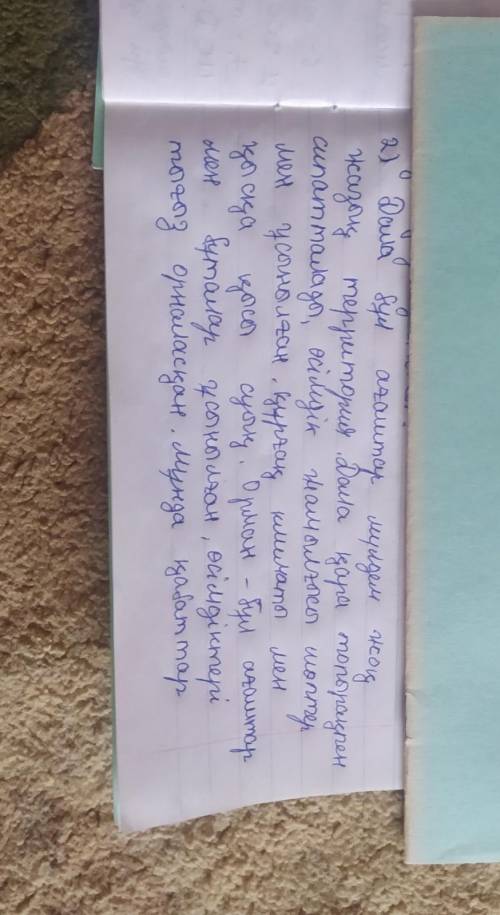 2) Дала бұл ағаштар мүлдем жоқ
жазық территория. Дала қара топырақпен
сипатталады, өсімдік жамылғысы шөптер
мен ұсынылған, құрғақ климаты мен
қысқа қысы суық. Орман - бұл ағаштар
мен бұталар ұсынылған, өсімдіктері
тығыз орналасқан. Мұнда қабаттар